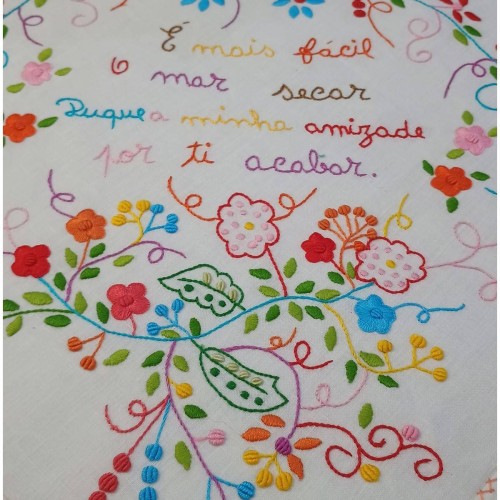 É mais fácil
o mar secar
Duque a minha amizade
por ti acabar.